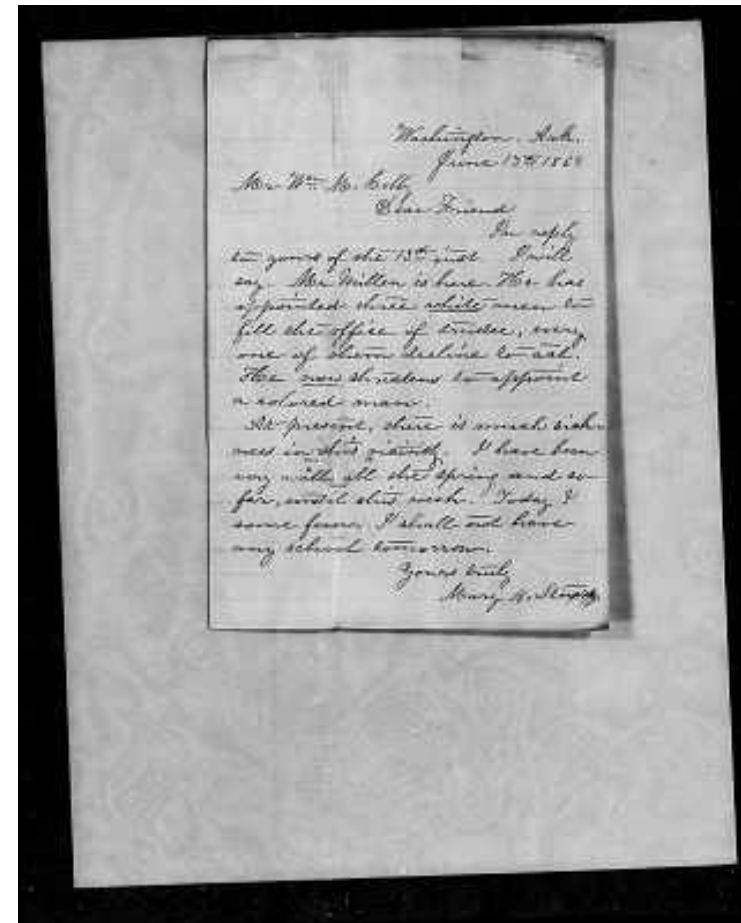 Washington, Ark.
June 15th 1869
Mr. Wm. M. Colby
Dear Friend
In reply
to yours of the 13th inst. I will
say. Mr. Millen is here. He has
appointed three white men to
fill the office of trustee, every
one of them decline to act.
He now threatens to appoint
a colored man.
At present, there is much sick-
ness in this vicinity. I have been
very well, all the spring and so
far, until this week. Today I
some fever, I shall not have
my school tomorrow.
Yours truly
Mary H.